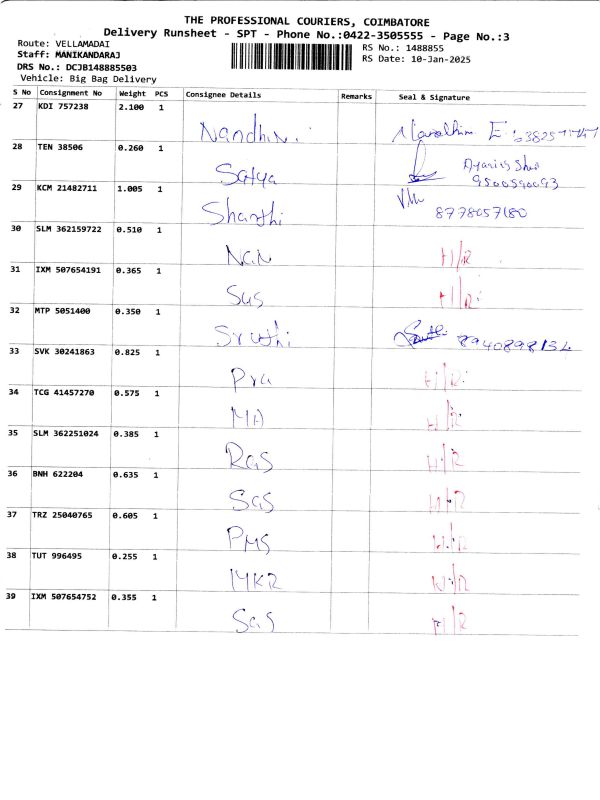 THE PROFESSIONAL COURIERS, COIMBATORE
Delivery Runsheet - SPT - Phone No.:0422-3505555 - Page No.:3
Route: VELLAMADAI
Staff: MANIKANDARAJ
DRS No.: DCJB148885503
Vehicle: Big Bag Delivery
RS No.: 1488855
RS Date: 10-Jan-2025
S No Consignment No Weight PCS Consignee Details Remarks Seal & Signature
27 KDI 757238 2.100 1 Nandhini
28 TEN 38506 0.260 1 Satya 9500590093
29 KCM 21482711 1.005 1 Shanthi 8778057180
30 SLM 362159722 0.510 1 NGN H/R
31 IXM 507654191 0.365 1 Sus H/R
32 MTP 5051400 0.350 1 Sruthi 8940898134
33 SVK 30241863 0.825 1 Pra H/R
34 TCG 41457270 0.575 1 MA H/R
35 SLM 362251024 0.385 1 RGS H/R
36 BNH 622204 0.635 1 SGS H/R
37 TRZ 25040765 0.605 1 PMS H/R
38 TUT 996495 0.255 1 MKR H/R
39 IXM 507654752 0.355 1 SGS H/R